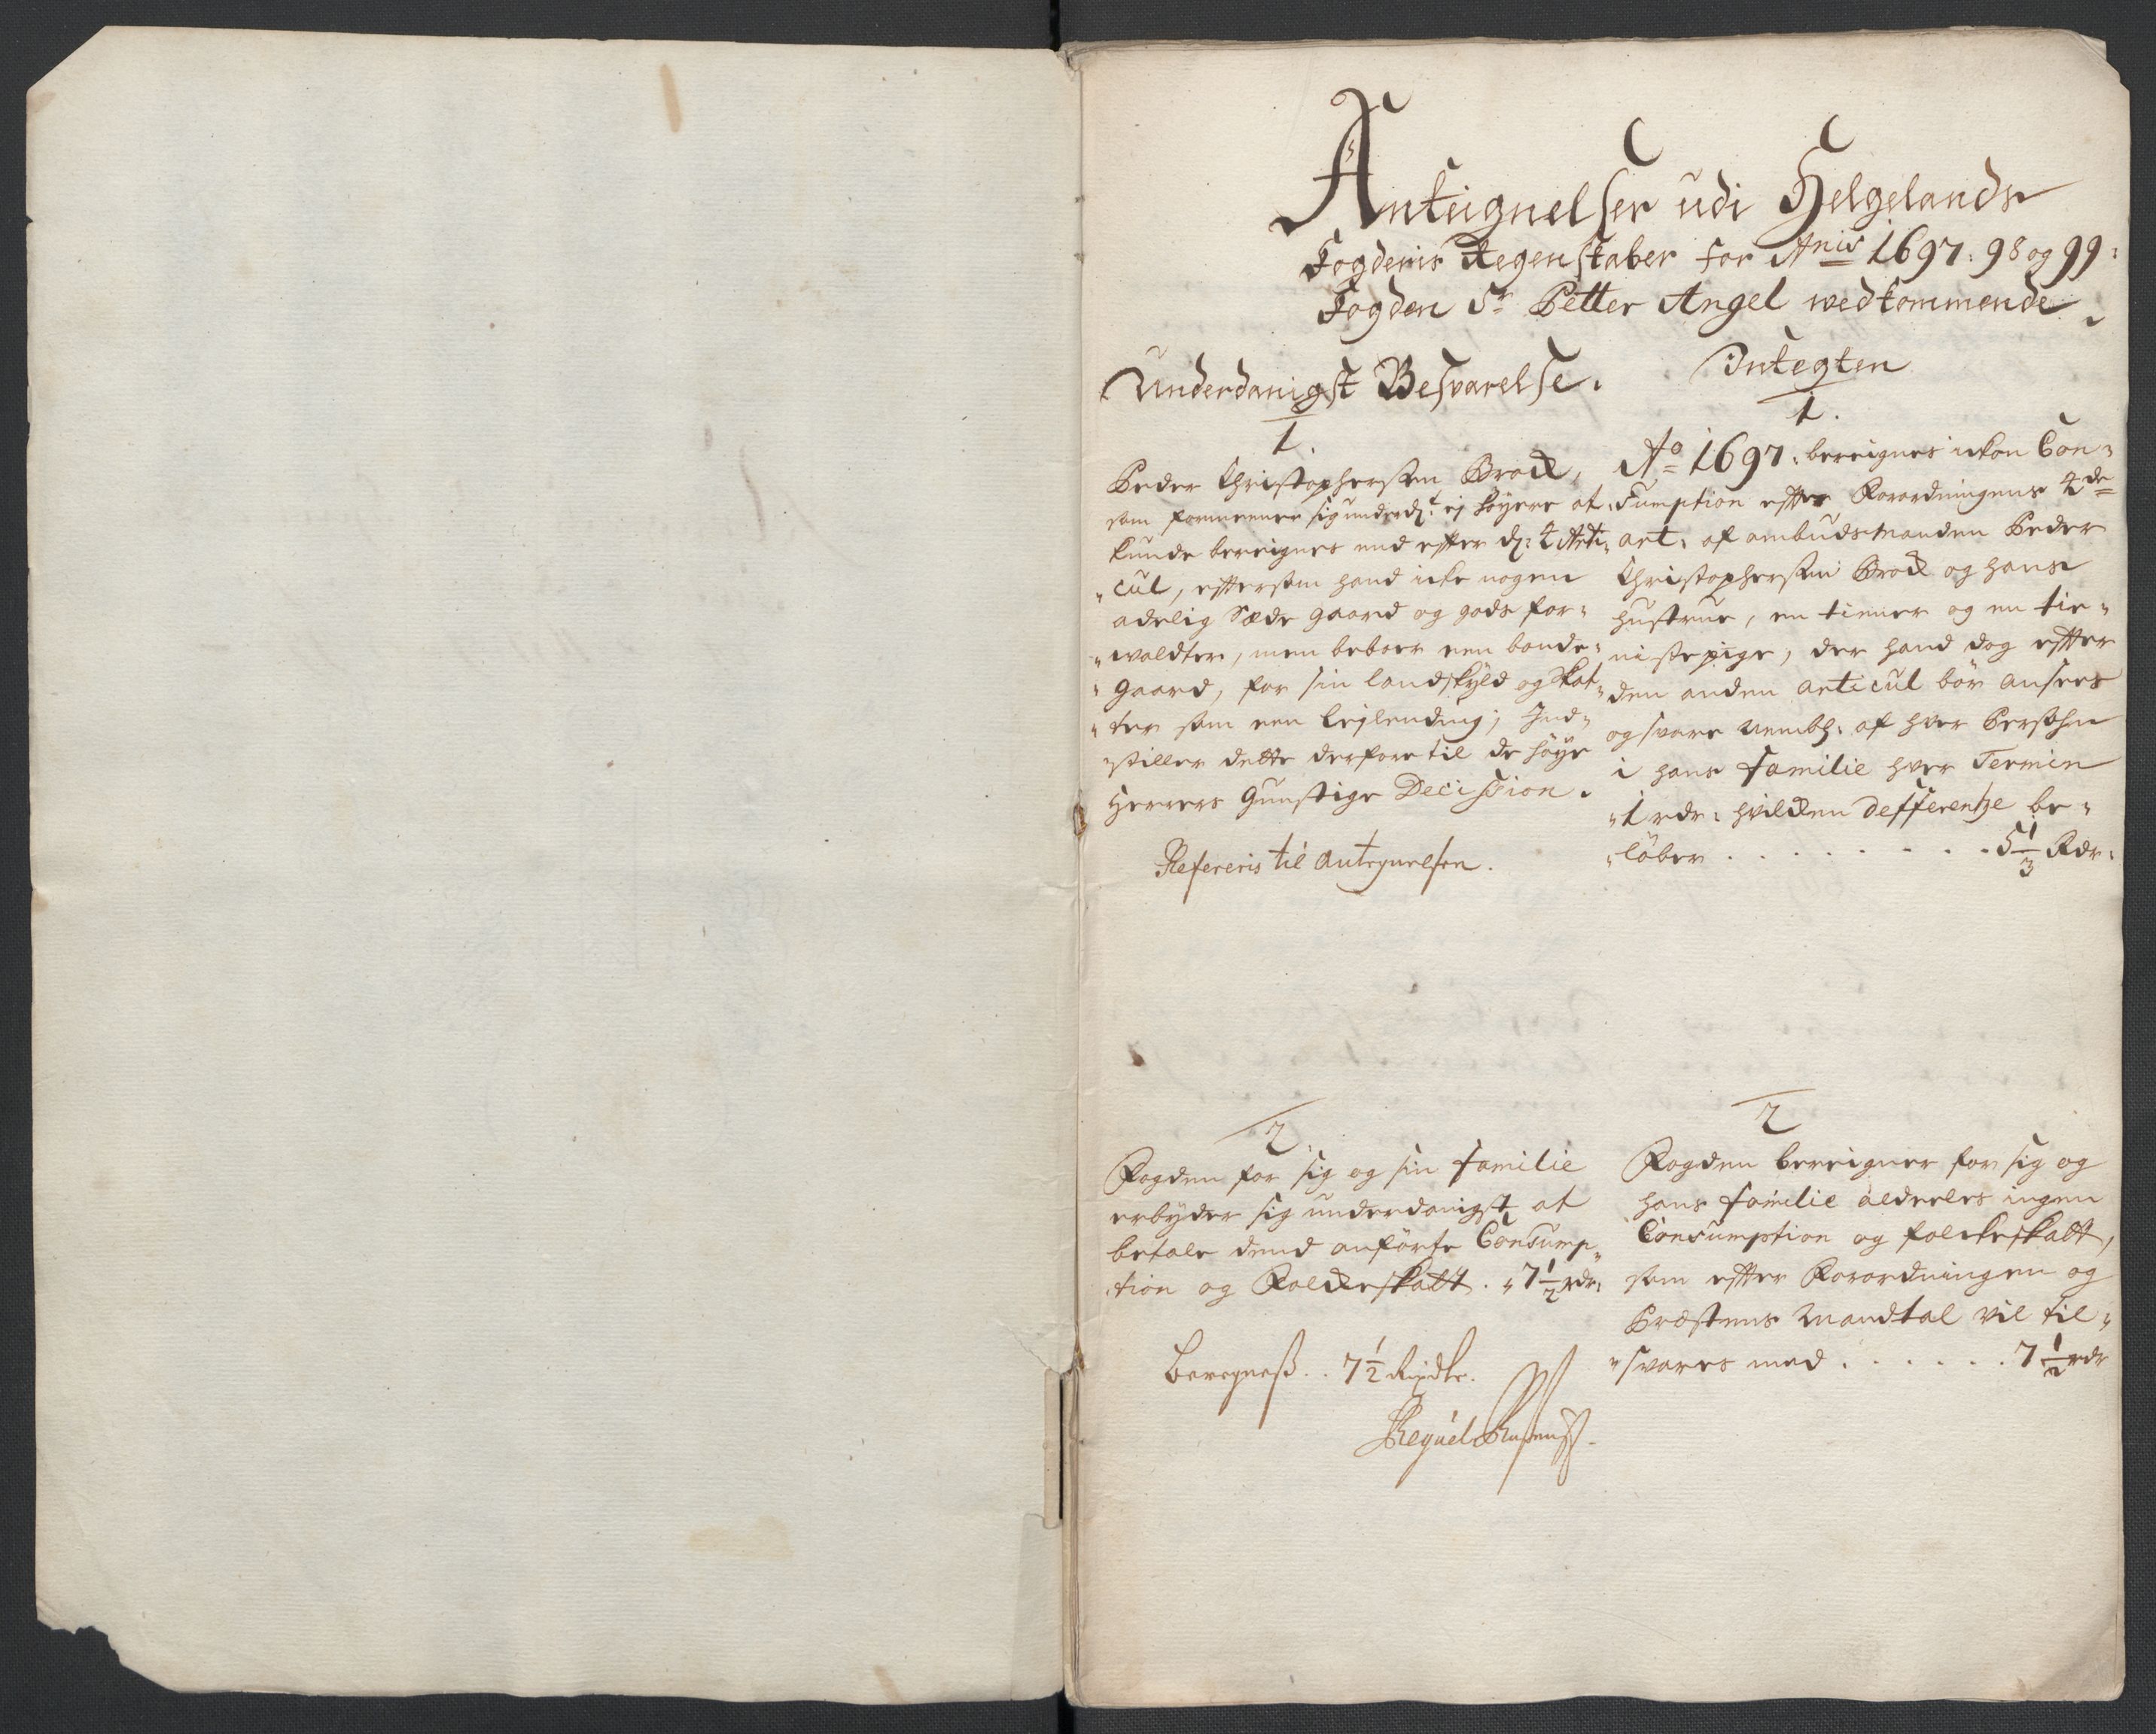 Antegnelser udi Helgelands
Fogderis Regenskaber for Anis 1697: 98 og 99:
Fogden Sr Petter Angel wedkommende
Underdanigst Besvarelse.
1.
Peder Christophersen Brock,
som formeener sig underdt: ej høyere at
kunde bereignes end efter d: 4 Arti-
cul, eftersom hand icke nogen
adelig Sæde gaard og gods for-
waldter, men beboer een bonde-
gaard, for sin landskyld og skat-
ter som een leylending; Ind-
stiller dette derfore til de høye
Herrers Gunstige Decission.
Refereris til Antegnelsen.
2.
Fogden for sig og sin familie
erbyder sig underdanigst at
betale dend anførte Consump-
tion og Folckeskatt. 7 1/2 rdr:
Beregneß.. 7 1/2 Rixdlr.
Integten
1.
Ao 1697: bereignes ickon Con-
sumption efter Forordningens 4de
art: af ombudsmanden Peder
Christophersen Brock og hans
hustrue, en tiener og en tie-
nistepige, der hand dog efter
den anden articul bør ansees
og svare nembl: af hver Persohn
i hans familie hver Termin
1 rdr: hvilcken defferentze be-
løber . . . . . . . . . 5 1/3 Rdr:
2
Fogden bereigner for sig og
hans familie aldeeles ingen
Consumption og folckeskatt,
som efter Forordningen og
Præstens Mandtal vil til-
svares med . . . . . . 7 1/2 rdr